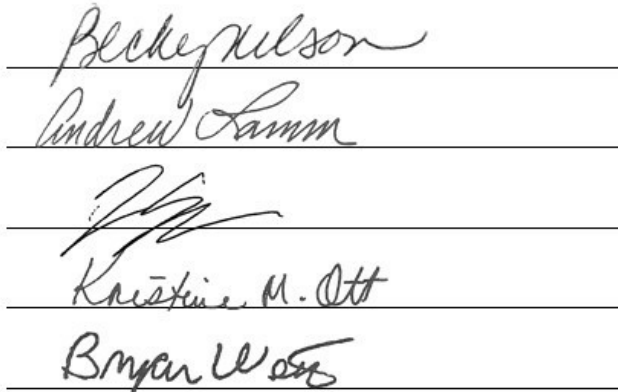 Becky Nelson
Andrew Lamm
Kristine M. Ott
Bryan